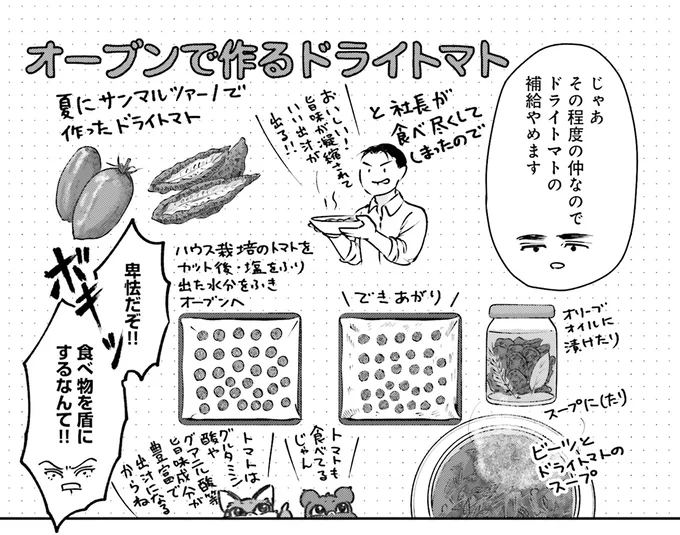 オーブンで作るドライトマト
じゃあ
その程度の仲なので
ドライトマトの
補給やめます
夏にサンマルツァーノで
作ったドライトマト
と社長が
食べ尽くして
しまったので
おいしい!
旨味が凝縮されて
いい出汁が
出る!!
ハウス栽培のトマトを
カット後・塩をふり
出た水分をふき
オーブンへ
できあがり
オリーブ
オイルに
漬けたり
スープに(たり)
ビーツと
ドライトマトの
スープ
卑怯だぞ!!
ボキッ
食べ物を盾に
するなんて!!
トマトも
食べてる
じゃん
トマトは
グルタミン
酸や
グアニル酸等
旨味成分が
豊富で
出汁になる
からね